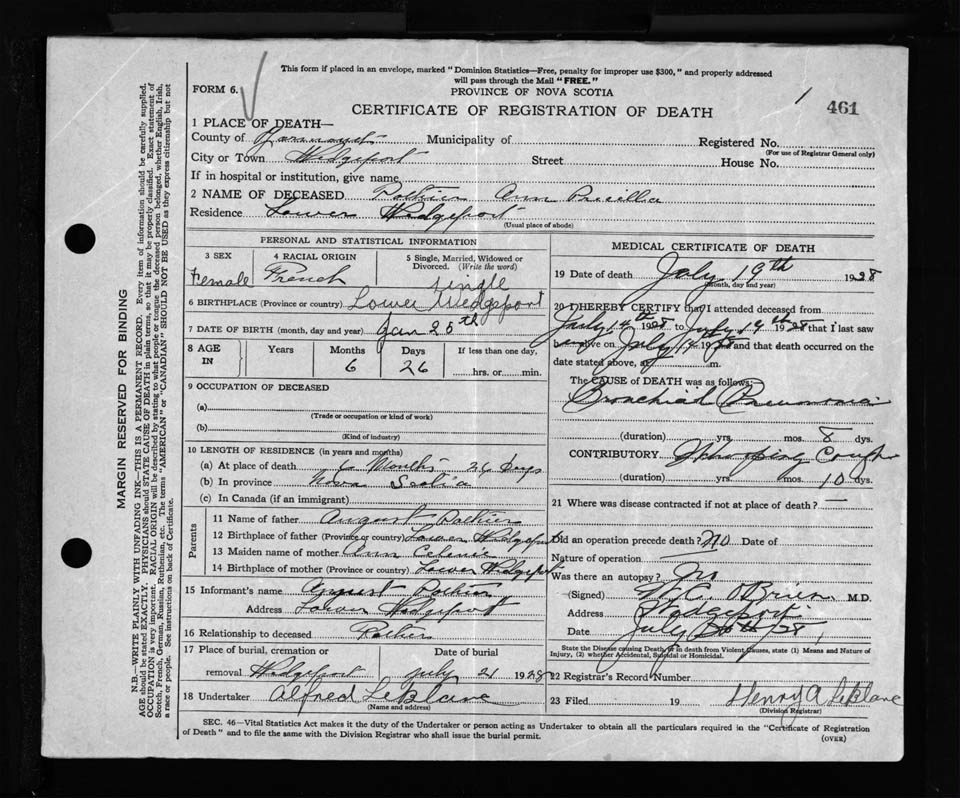 This form if placed in an envelope, marked "Dominion Statistics—Free, penalty for improper use $300," and properly addressed
will pass through the Mail "FREE."
FORM 6.
PROVINCE OF NOVA SCOTIA
CERTIFICATE OF REGISTRATION OF DEATH
461
1 PLACE OF DEATH—
County of Yarmouth Municipality of Registered No.
(For use of Registrar General only)
City or Town Wedgeport Street House No.
If in hospital or institution, give name
2 NAME OF DECEASED Pothier Ann Pricilla
Residence Lower Wedgeport
(Usual place of abode)
PERSONAL AND STATISTICAL INFORMATION
3 SEX Female
4 RACIAL ORIGIN French
5 Single, Married, Widowed or Divorced. (Write the word) single
6 BIRTHPLACE (Province or country) Lower Wedgeport
7 DATE OF BIRTH (month, day and year) Jan 25th
8 AGE IN Years Months 6 Days 26 If less than one day, hrs. or min.
9 OCCUPATION OF DECEASED
(a)
(Trade or occupation or kind of work)
(b)
(Kind of industry)
10 LENGTH OF RESIDENCE (in years and months)
(a) At place of death 6 Months 26 Days
(b) In province Nova Scotia
(c) In Canada (if an immigrant)
Parents
11 Name of father August Pothier
12 Birthplace of father (Province or country) Lower Wedgeport
13 Maiden name of mother Ann
14 Birthplace of mother (Province or country) Lower Wedgeport
15 Informant's name August Pothier
Address Lower Wedgeport
16 Relationship to deceased
17 Place of burial, cremation or removal Wedgeport
Date of burial July 21 1928
18 Undertaker Alfred LeBlanc
(Name and address)
MEDICAL CERTIFICATE OF DEATH
19 Date of death July 19th 1928
(Month, day and year)
20 I HEREBY CERTIFY that I attended deceased from
July 14th 1928 to July 19th 1928 that I last saw
alive on July 1928 and that death occurred on the
date stated above, at m.
The CAUSE OF DEATH was as follows:
Bronchial Pneumonia
(duration) yrs. mos. 8 dys.
CONTRIBUTORY Whooping Cough
(duration) yrs. mos. 10 dys.
21 Where was disease contracted if not at place of death? —
Did an operation precede death? No Date of
Nature of operation
Was there an autopsy? No
(Signed) O'Brien M.D.
Address Wedgeport
Date July 28
State the Disease causing Death, or in death from Violent Causes, state (1) Means and Nature of
Injury, (2) whether Accidental, Suicidal or Homicidal.
22 Registrar's Record Number
23 Filed 19 Henry A LeBlanc
(Division Registrar)
SEC. 46—Vital Statistics Act makes it the duty of the Undertaker or person acting as Undertaker to obtain all the particulars required in the "Certificate of Registration
of Death" and to file the same with the Division Registrar who shall issue the burial permit.
(OVER)
MARGIN RESERVED FOR BINDING
N.B.—WRITE PLAINLY WITH UNFADING INK—THIS IS A PERMANENT RECORD. Every item of information should be carefully supplied.
AGE should be stated EXACTLY. PHYSICIANS should STATE CAUSE OF DEATH in plain terms, so that it may be properly classified. Exact statement of
OCCUPATION is very important. RACIAL ORIGIN will be described by stating to what people or tongue the deceased person belonged, whether English, Irish,
Scotch, French, German, Russian, Ruthenian, etc. The terms "AMERICAN" or "CANADIAN" SHOULD NOT BE USED as they express citizenship but not
a race or people. See instructions on back of Certificate.